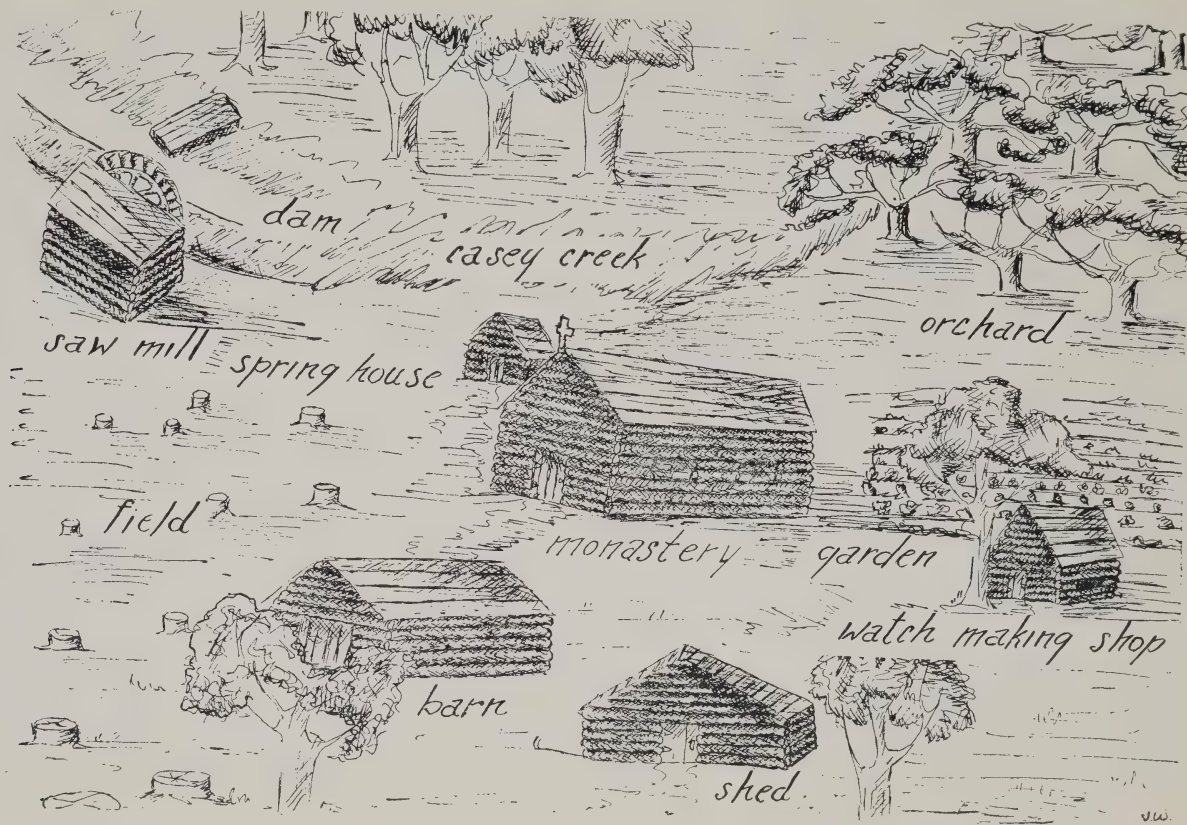 dam
casey creek
orchard
saw mill
spring house
field
monastery
garden
watch making shop
barn
shed.
J.W.